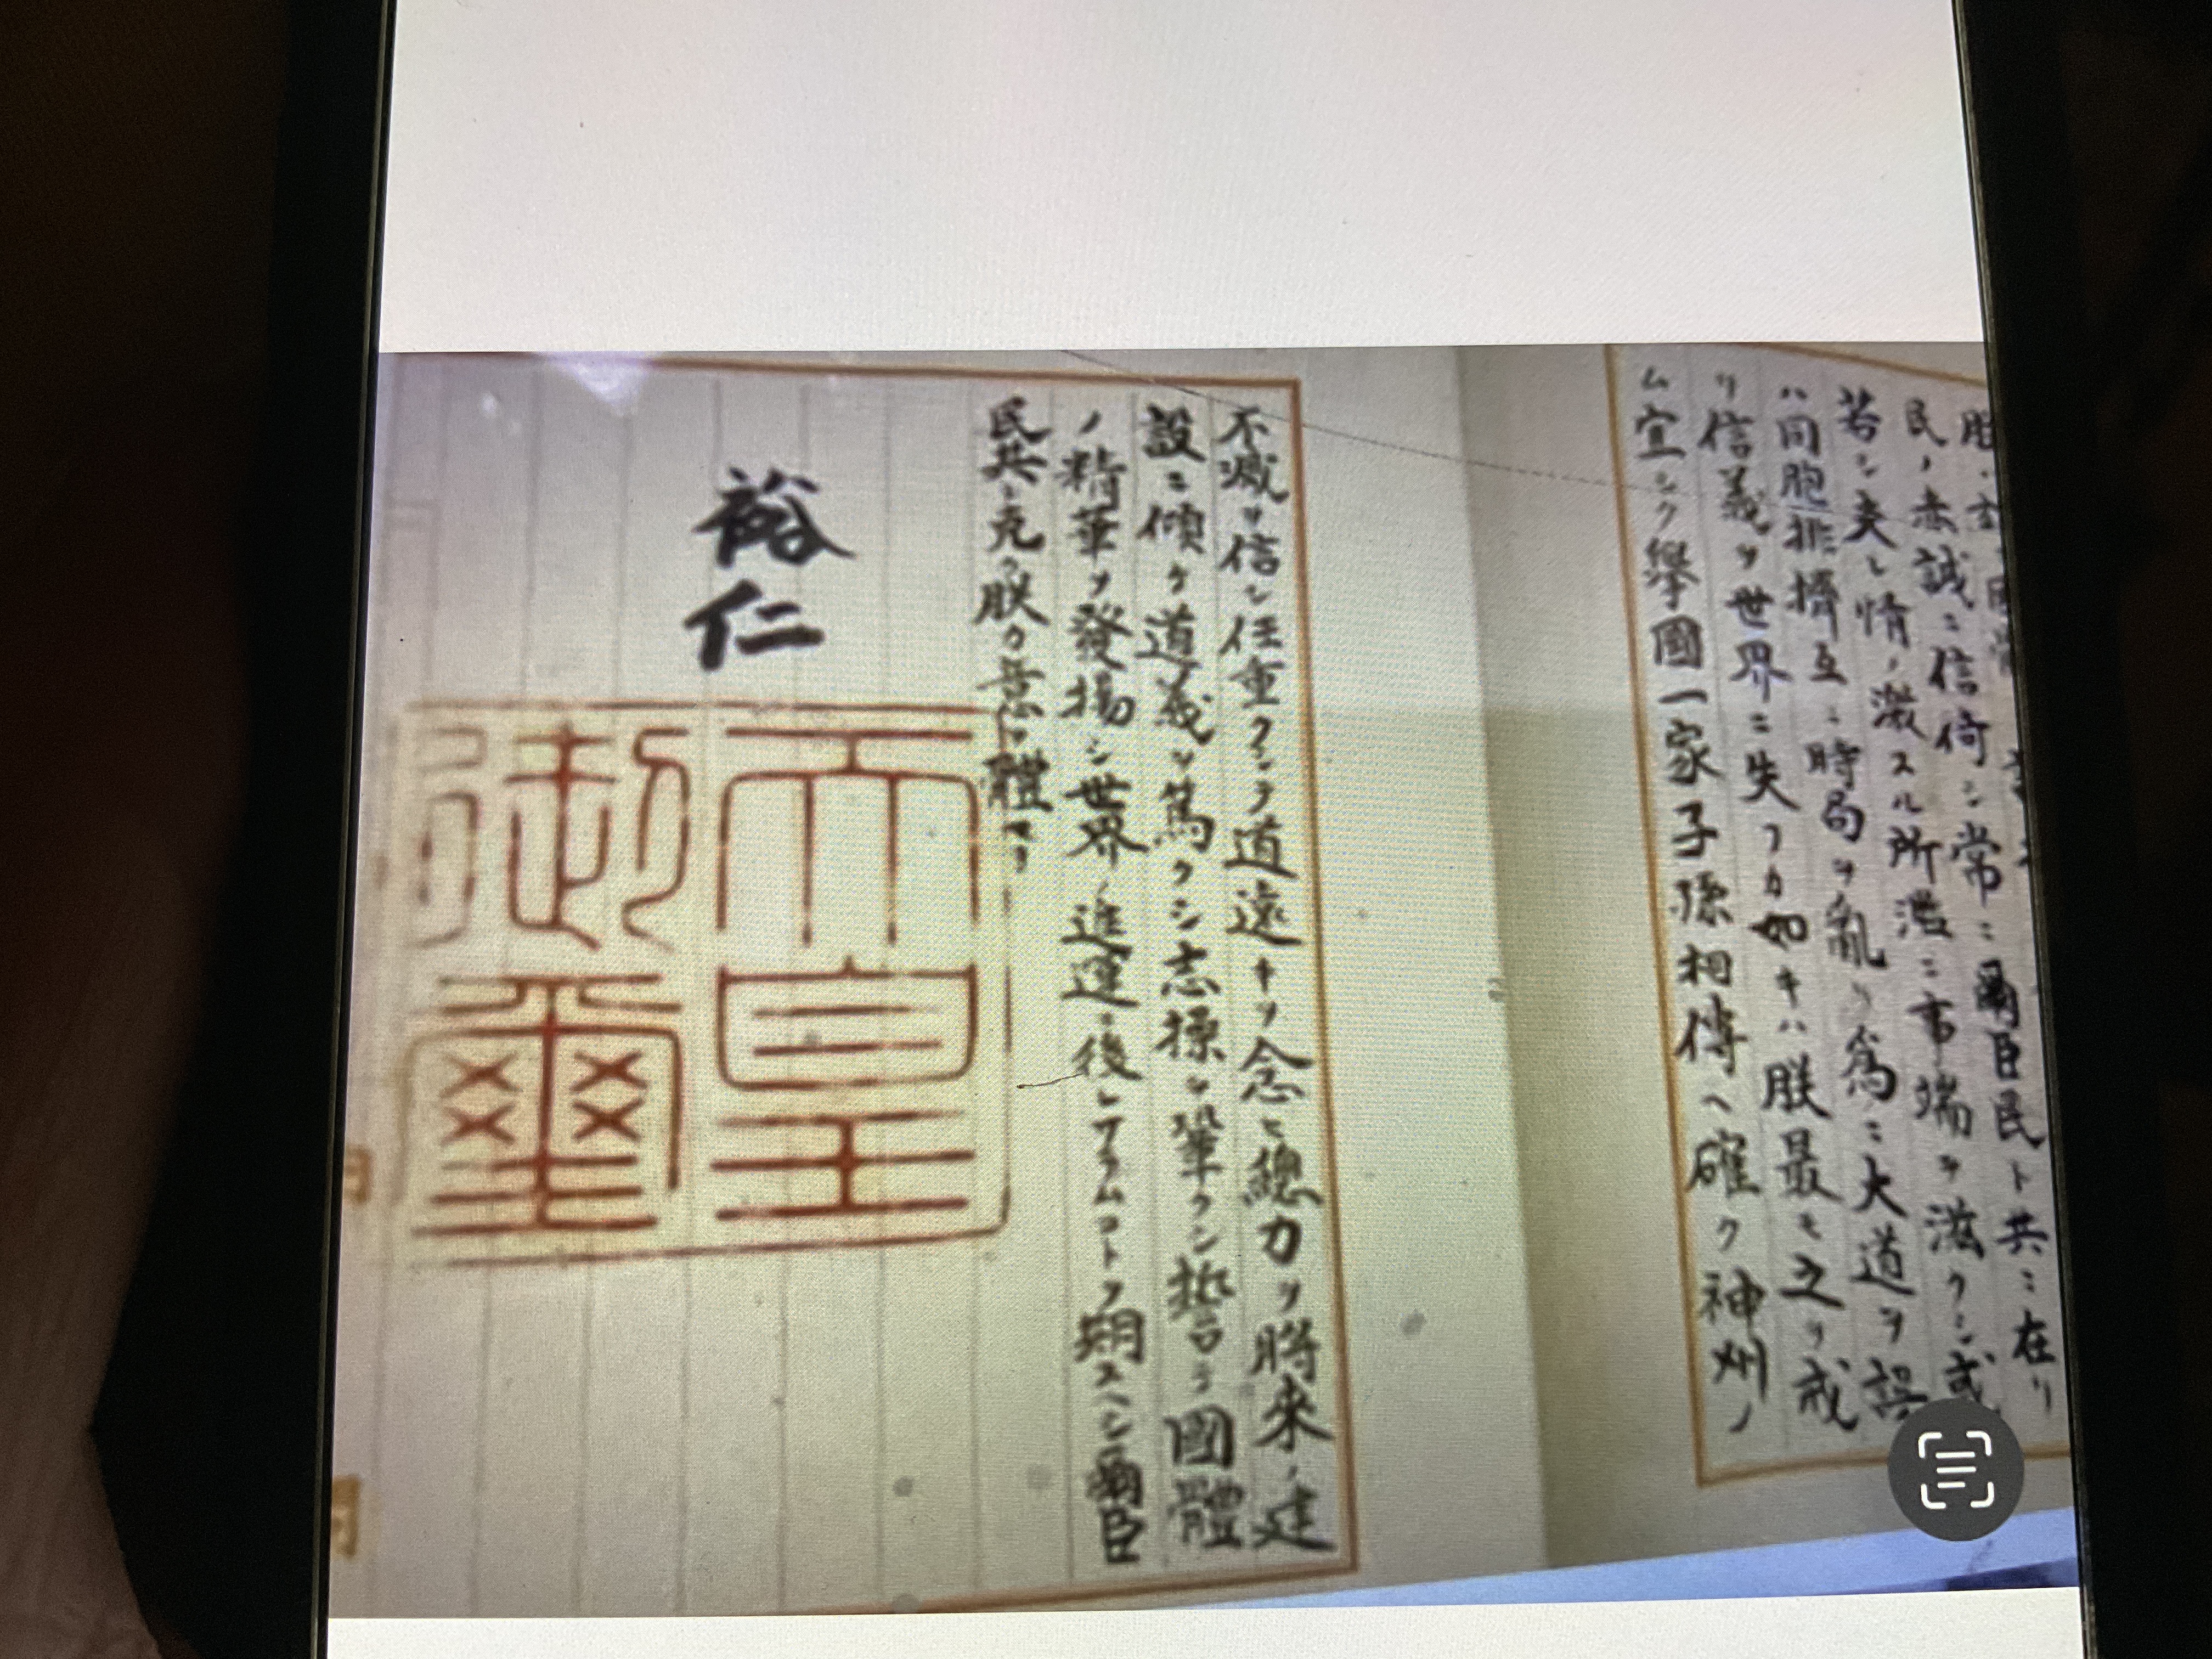 民ノ赤誠ニ信倚シ常ニ爾臣民ト共ニ在リ
若シ夫レ情ノ激スル所濫ニ事端ヲ滋クシ或
ハ同胞排擠互ニ時局ヲ亂リ爲ニ大道ヲ誤
リ信義ヲ世界ニ失フカ如キハ朕最モ之ヲ戒
ム宜シク擧國一家子孫相傳ヘ確ク神州ノ
不滅ヲ信シ任重クシテ道遠キヲ念ヒ總力ヲ將來ノ建
設ニ傾ケ道義ヲ篤クシ志操ヲ鞏クシ誓テ國體
ノ精華ヲ發揚シ世界ノ進運ニ後レサラムコトヲ期スヘシ爾臣
民其レ克ク朕カ意ヲ體セヨ
裕仁
天皇
御璽